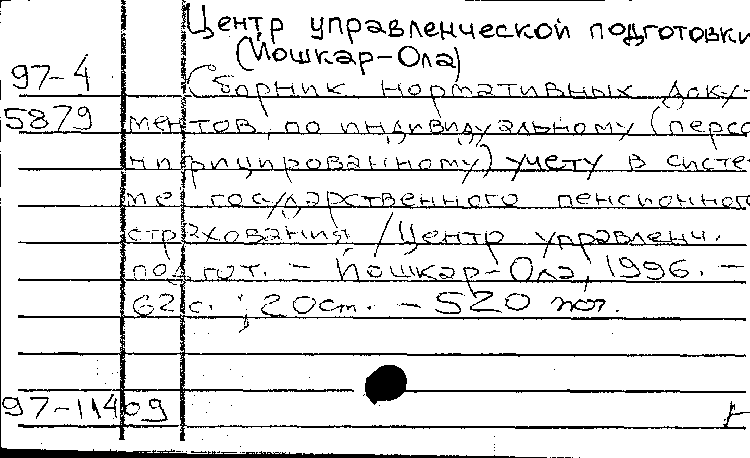 Центр управленческой подготовки
(Йошкар-Ола)
97-4 Сборник нормативных доку-
5879 ментов, по индивидуальному (персо
нифицированному) учету в систе
ме государственного пенсионного
страхования / Центр управленч.
подгот. - Йошкар-Ола, 1996. -
62 с. ; 20 cm. - 520
97-11409